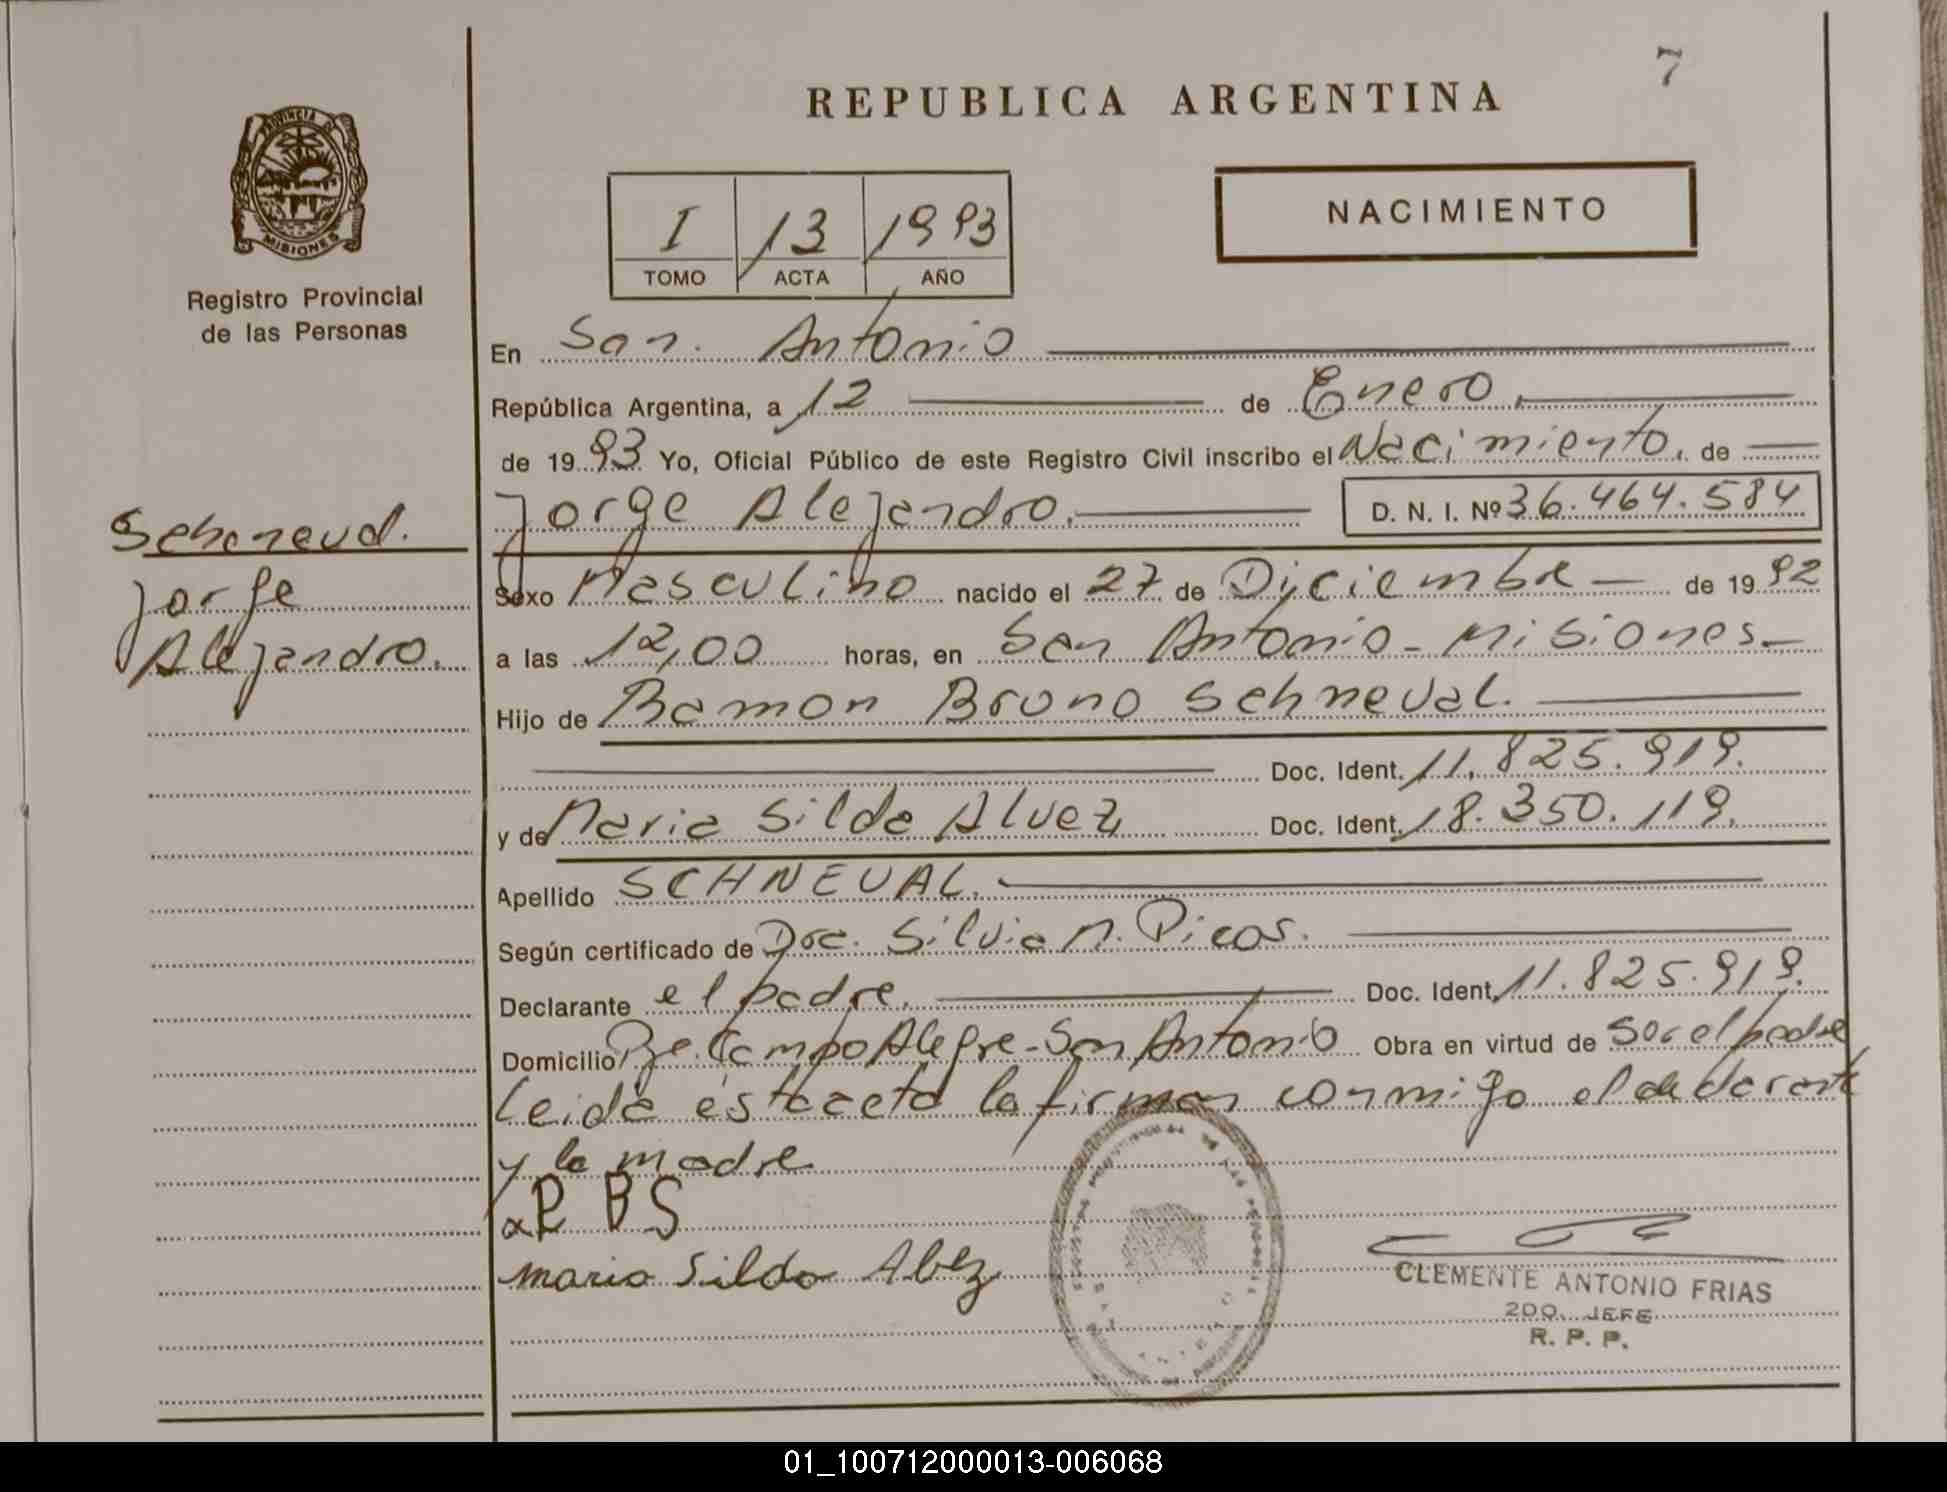 7
REPUBLICA ARGENTINA
PROVINCIA DE
MISIONES
Registro Provincial
de las Personas
NACIMIENTO
I 13 1993
TOMO ACTA AÑO
En San Antonio
República Argentina, a 12 de Enero
de 1993 Yo, Oficial Público de este Registro Civil inscribo el Nacimiento, de
Jorge Alejandro. D. N. I. Nº 36.464.584
Schoneud.
Jorge
Alejandro.
Sexo Masculino nacido el 27 de Diciembre de 1992
a las 12,00 horas, en San Antonio - Misiones
Hijo de Ramon Bruno Schneval.
Doc. Ident. 11.825.919.
y de Maria Silda Alvez Doc. Ident. 18.350.119.
Apellido SCHNEVAL.
Según certificado de Dra. Silvia M. Picos.
Declarante el padre. Doc. Ident. 11.825.919.
Domicilio Pje. Campo Alegre - San Antonio Obra en virtud de Ser el padre
Leida esta acta la firman conmigo el declarante
y la madre
R B S
Maria Silda Albez
CLEMENTE ANTONIO FRIAS
2DO. JEFE
R. P. P.
01_100712000013-006068